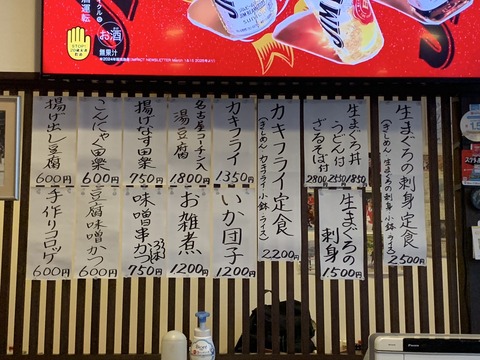 お酒
無果汁
STOP!
生まぐろの刺身定食
(きしめん 生まぐろの刺身 小鉢 ライス)
2500円
生まぐろ丼
うどん付
ざるそば付
1850円
2550
2800
生まぐろの刺身
1500円
カキフライ定食
(きしめん カキフライ 小鉢 ライス)
2200円
カキフライ
1350円
いか団子
1200円
名古屋コーチン入
湯豆腐
1800円
お雑煮
1200円
揚げなす田楽
750円
味噌串かつ
3本
750円
こんにゃく田楽
600円
豆腐味噌かつ
600円
揚げ出し豆腐
600円
手作りコロッケ
600円